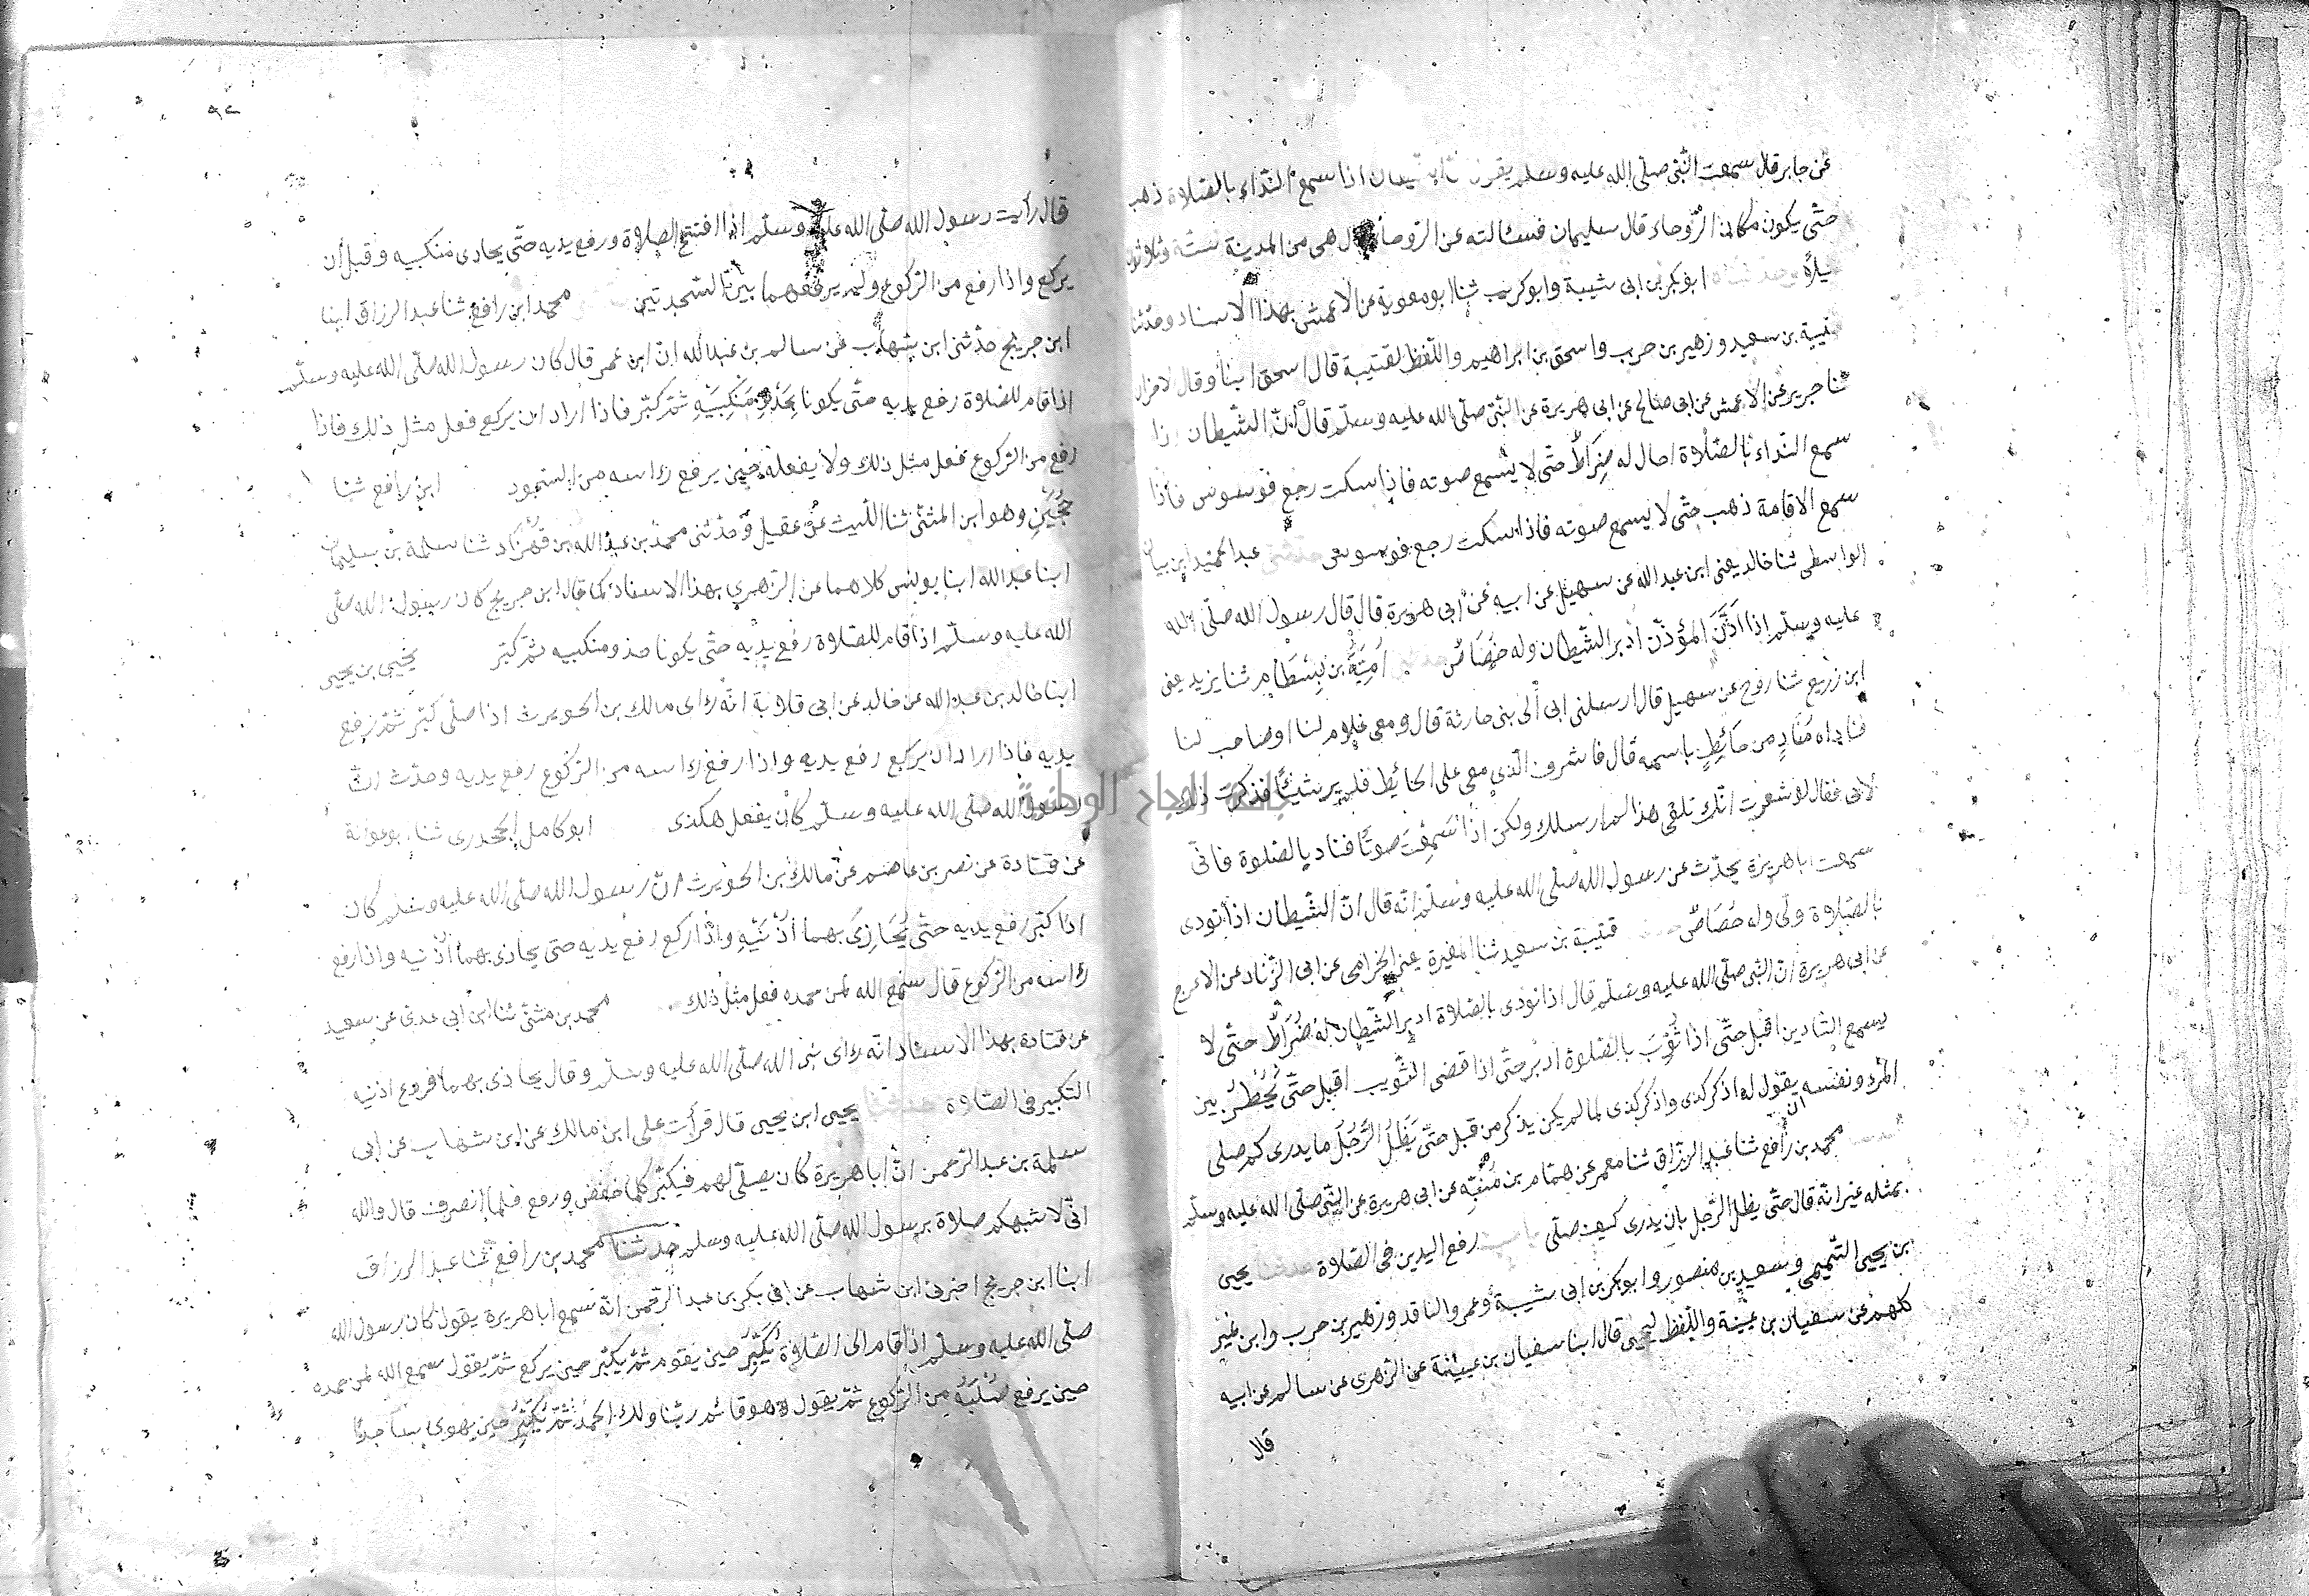 عن جابر قال سمعت النبى صلى الله عليه وسلم يقول ان الشيطان اذا سمع النداء بالصلاة ذهب
حتى يكون مكان الروحاء قال سليمان فسئالته عن الروحا فقال هى من المدينة ستة وثلاثون
ميلا وحدثناه ابو بكر بن ابى شيبة وابو كريب ثنا ابو معوية عن الاعمش بهذا الاسناد وحدثنا
قتيبة بن سعيد وزهير بن حرب واسحق بن ابراهيم واللفظ لقتيبة قال اسحق ابنا وقال الاخران
ثنا جرير عن الاعمش عن ابى صالح عن ابى هريرة عن النبى صلى الله عليه وسلم قال ان الشيطان اذا
سمع النداء بالصلاة احال له ضراط حتى لا يسمع صوته فاذا سكت رجع فوسوس فاذا
سمع الاقامة ذهب حتى لا يسمع صوته فاذا سكت رجع فوسوس حدثنى عبد الحميد ابن بيان
الواسطى ثنا خالد يعنى ابن عبد الله عن سهيل عن ابيه عن ابى هريرة قال قال رسول الله صلى الله
عليه وسلم اذا اذن المؤذن ادبر الشيطان وله حصاص حدثنى امية بن بسطام ثنا يزيد يعنى
ابن زريع ثنا روح عن سهيل قال ارسلنى ابى الى بنى حارثة قال ومعى غلام لنا او صاحب لنا
فناداه مناد من حائط باسمه قال فاشرف الذى معى على الحائط فلم ير شيئا فذكرت ذلك
لابى فقال لو شعرت انك تلقى هذا لم ارسلك ولكن اذا سمعت صوتا فناد بالصلوة فانى
سمعت ابا هريرة يحدث عن رسول الله صلى الله عليه وسلم انه قال ان الشيطان اذا نودى
بالصلاوة ولى وله حصاص قتيبة بن سعيد ثنا المغيرة يعنى الحزامى عن ابى الزناد عن الاعرج
عن ابى هريرة ان النبى صلى الله عليه وسلم قال اذا نودى بالصلاة ادبر الشيطان له ضراط حتى لا
يسمع التاذين اقبل حتى اذا ثوب بالصلوة ادبر حتى اذا قضى التثويب اقبل حتى يخطر بين
المرء ونفسه يقول له اذكر كذى واذكر كذى لما لم يكن يذكر من قبل حتى يظل الرجل ما يدرى كم صلى
محمد بن رافع ثنا عبد الرزاق ثنا معمر عن همام بن منبه عن ابى هريرة عن النبى صلى الله عليه وسلم
بمثله غير انه قال حتى يظل الرجل ان يدرى كيف صلى باب رفع اليدين فى الصلاة حدثنا يحيى
بن يحيى التميمى وسعيد بن منصور وابو بكر بن ابى شيبة وعمرو الناقد وزهير بن حرب وابن نمير
كلهم عن سفيان بن عيينة واللفظ ليحيى قال ابنا سفيان بن عيينة عن الزهرى عن سالم عن ابيه
قال
٩٢
قال رأيت رسول الله صلى الله عليه وسلم اذا افتتح الصلاة ورفع يديه حتى يحاذى منكبيه وقبل ان
يركع واذا رفع من الركوع ولم يرفعهما بين السجدتين محمد ابن رافع ثنا عبد الرزاق ابنا
ابن جريج حدثنى ابن شهاب عن سالم بن عبد الله ان ابن عمر قال كان رسول الله صلى الله عليه وسلم
اذا قام للصلوة رفع يديه حتى يكونا بحذو منكبيه ثم كبر فاذا اراد ان يركع فعل مثل ذلك فاذا
رفع من الركوع فعل مثل ذلك ولا يفعله حين يرفع راسه من السجود ابن رافع ثنا
حجين وهو ابن المثنى ثنا الليث عن عقيل وحدثنى محمد بن عبد الله بن قهزاد ثنا سلمة بن سليمان
ابنا عبد الله ابنا يونس كلاهما عن الزهرى بهذا الاسناد كما قال ابن جريج كان رسول الله صلى
الله عليه وسلم اذا قام للصلاة رفع يديه حتى يكونا حذو منكبيه ثم كبر يحيى بن يحيى
ابنا خالد بن عبد الله عن خالد عن ابى قلابة انه راى مالك بن الحويرث اذا صلى كبر ثم رفع
يديه فاذا اراد ان يركع رفع يديه واذا رفع راسه من الركوع رفع يديه وحدث ان
رسول الله صلى الله عليه وسلم كان يفعل هكذى ابو كامل الجحدرى ثنا ابو عوانة
عن قتادة عن نصر بن عاصم عن مالك بن الحويرث ان رسول الله صلى الله عليه وسلم كان
اذا كبر رفع يديه حتى يحاذى بهما اذنيه واذا ركع رفع يديه حتى يحاذى بهما اذنيه واذا رفع
راسه من الركوع قال سمع الله لمن حمده فعل مثل ذلك محمد بن مثنى ثنا ابن ابى عدى عن سعيد
عن قتادة بهذا الاسناد انه راى نبى الله صلى الله عليه وسلم وقال يحاذى بهما فروع اذنيه
التكبير فى الصلاة حدثنا يحيى ابن يحيى قال قرأت على ابن مالك عن ابن شهاب عن ابى
سلمة بن عبد الرحمن ان ابا هريرة كان يصلى لهم فيكبر كلما خفض ورفع فلما انصرف قال والله
انى لاشبهكم صلاة برسول الله صلى الله عليه وسلم حدثنا محمد بن رافع ثنا عبد الرزاق
ابنا ابن جريج اخبرنى ابن شهاب عن ابى بكر بن عبد الرحمن انه سمع ابا هريرة يقول كان رسول الله
صلى الله عليه وسلم اذا قام الى الصلاة يكبر حين يقوم ثم يكبر حين يركع ثم يقول سمع الله لمن حمده
حين يرفع صلبه من الركوع ثم يقول وهو قائم ربنا ولك الحمد ثم يكبر حين يهوى ساجدا
جامعة النجاح الوطنية